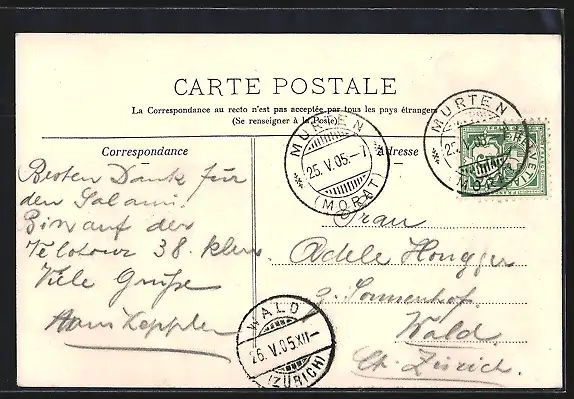 CARTE POSTALE
La Correspondance au recto n'est pas acceptée par tous les pays étrangers
(Se renseigner à la Poste)
Correspondance
Adresse
MURTEN
25.V.05.-7
(MORAT)
MURTEN
25.V.05
HELVETIA
Besten Dank für
den Salami!
Bin auf der
38.
Viele Grüße
Hans Keppler
Frau
Adele Honegger
z. Sonnenhof.
Wald.
Ct. Zürich.
WALD
26.V.05.XII-
(ZÜRICH)